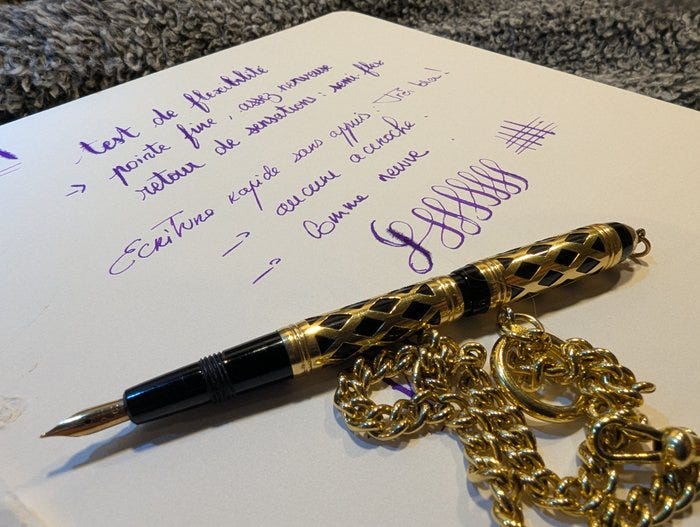 test de flexibilité
→ pointe fine, assez nerveuse
retour de sensation : semi flex
Ecriture rapide sans appuis. Très bien!
→ aucune accroche.
→ Comme neuve